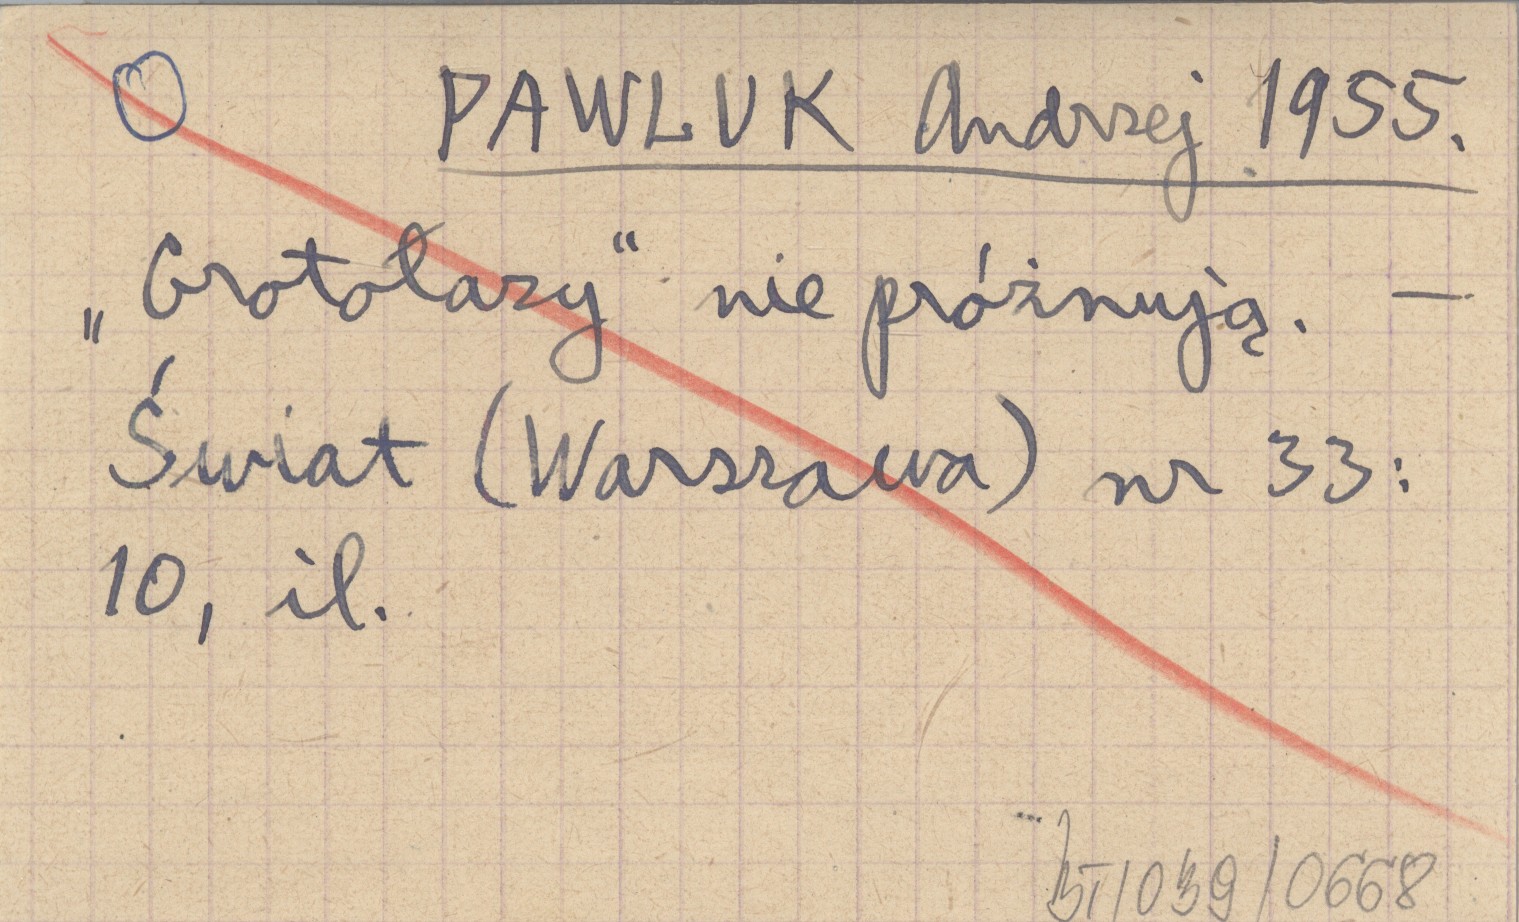 O PAWLUK Andrzej 1955.
„Grotołazy“ nie próżnują. —
Świat (Warszawa) nr 33:
10, il.
BI/039/0668